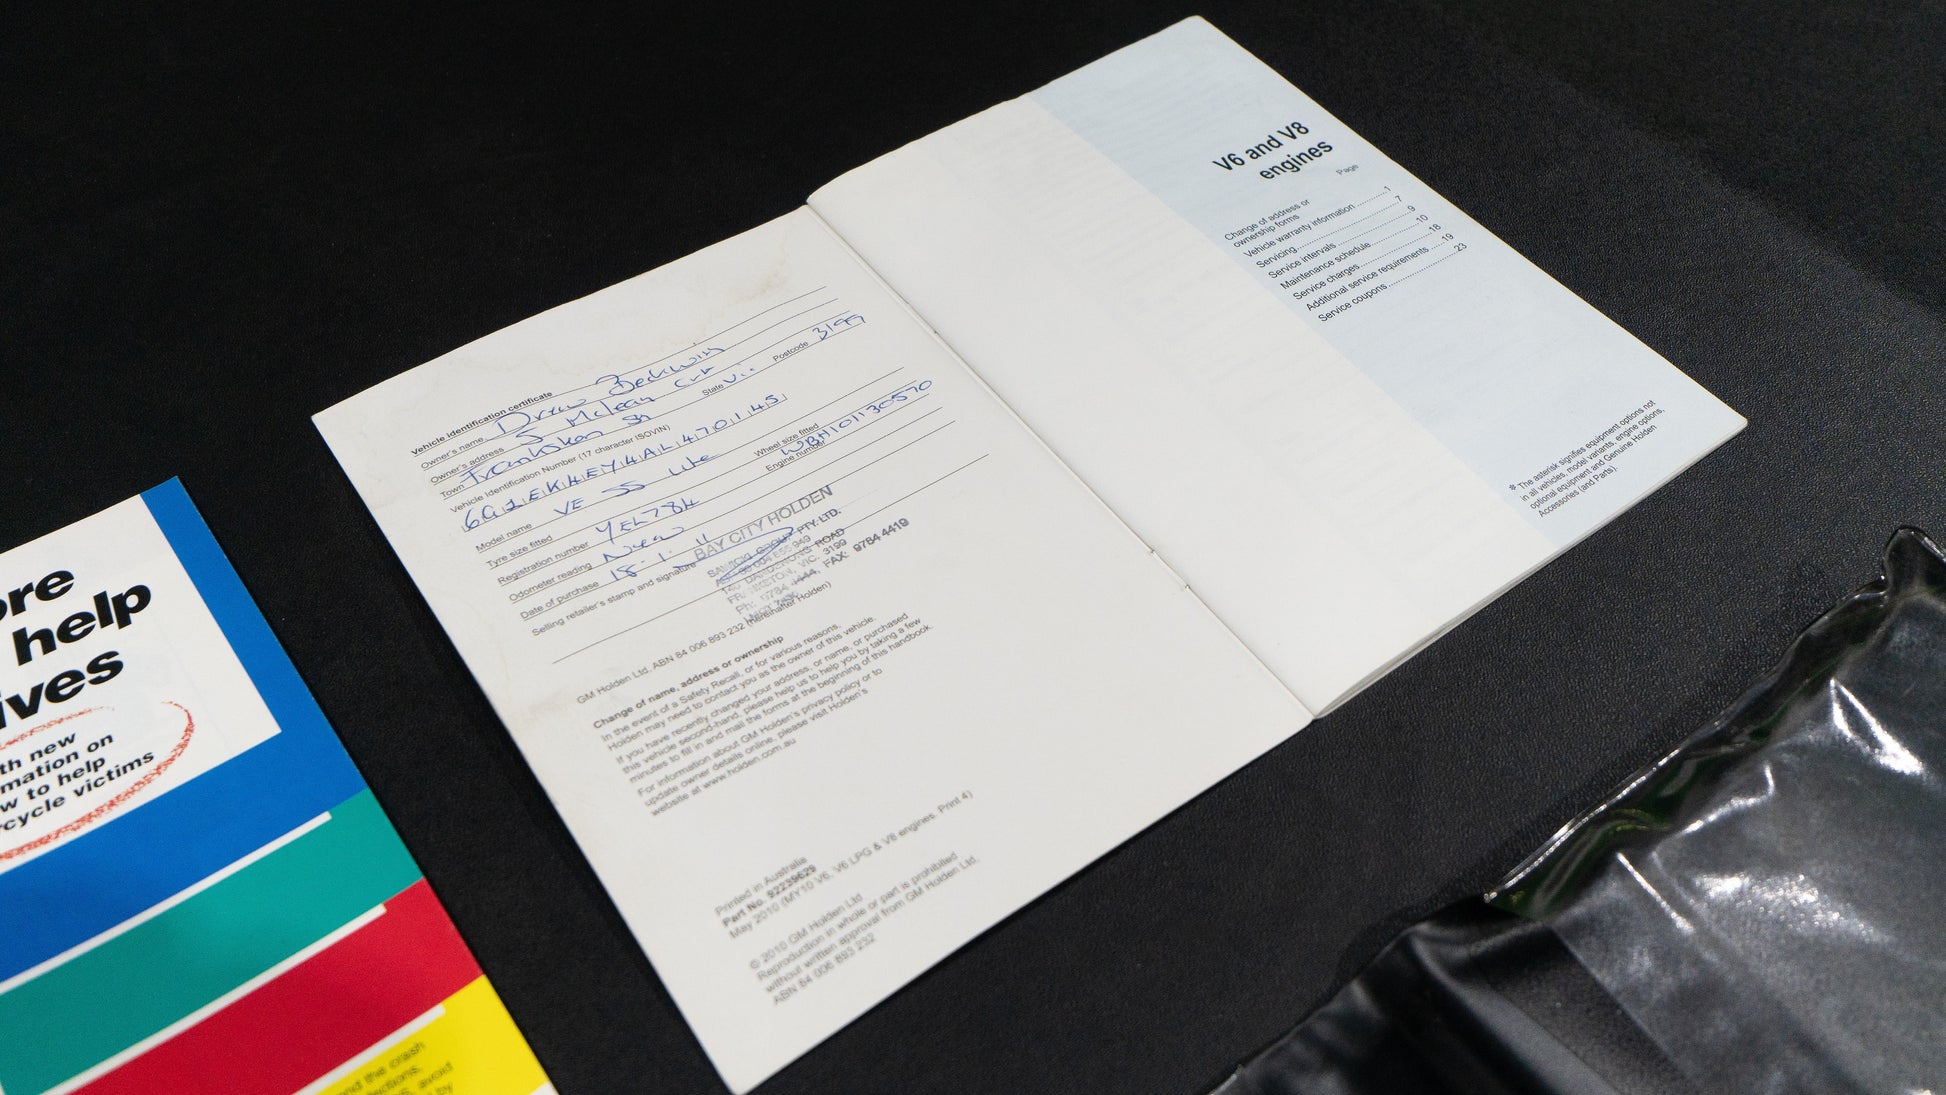 Vehicle identification certificate
Owner's name Drew Beckwith
Owner's address 5 Mclean Crt
Town Frankston Sth State Vic Postcode 3199
Vehicle Identification Number (17 character (SOVIN)
6G1EK4EY4AL470145
Model name VE SS Ute
Tyre size fitted Wheel size fitted
Registration number YEL784 Engine number WBH101130570
Odometer reading New
Date of purchase 18-1-11
Selling retailer's stamp and signature
BAY CITY HOLDEN
PTY. LTD.
DANDENONG ROAD
VIC. 3199
FAX: 9784 4419
GM Holden Ltd. ABN 84 006 893 232 (hereinafter Holden)
Change of name, address or ownership
In the event of a Safety Recall, or for various reasons,
Holden may need to contact you as the owner of this vehicle.
If you have recently changed your address, or name, or purchased
this vehicle second-hand, please help us to help you by taking a few
minutes to fill in and mail the forms at the beginning of this handbook.
For information about GM Holden's privacy policy or to
update owner details online, please visit Holden's
website at www.holden.com.au
Printed in Australia
Part No. 92239629
May 2010 (MY10 V6, V6 LPG & V8 engines. Print 4)
© 2010 GM Holden Ltd
Reproduction in whole or part is prohibited
without written approval from GM Holden Ltd.
ABN 84 006 893 232
V6 and V8
engines
Page
Change of address or
ownership forms 1
Vehicle warranty information 7
Servicing 9
Service intervals 10
Maintenance schedule 18
Service charges 19
Additional service requirements 23
Service coupons
* The asterisk signifies equipment options not
in all vehicles, model variants, engine options,
optional equipment and Genuine Holden
Accessories (and Parts).
ore
help
ives
th new
mation on
w to help
rcycle victims
nd the crash
avoid
by